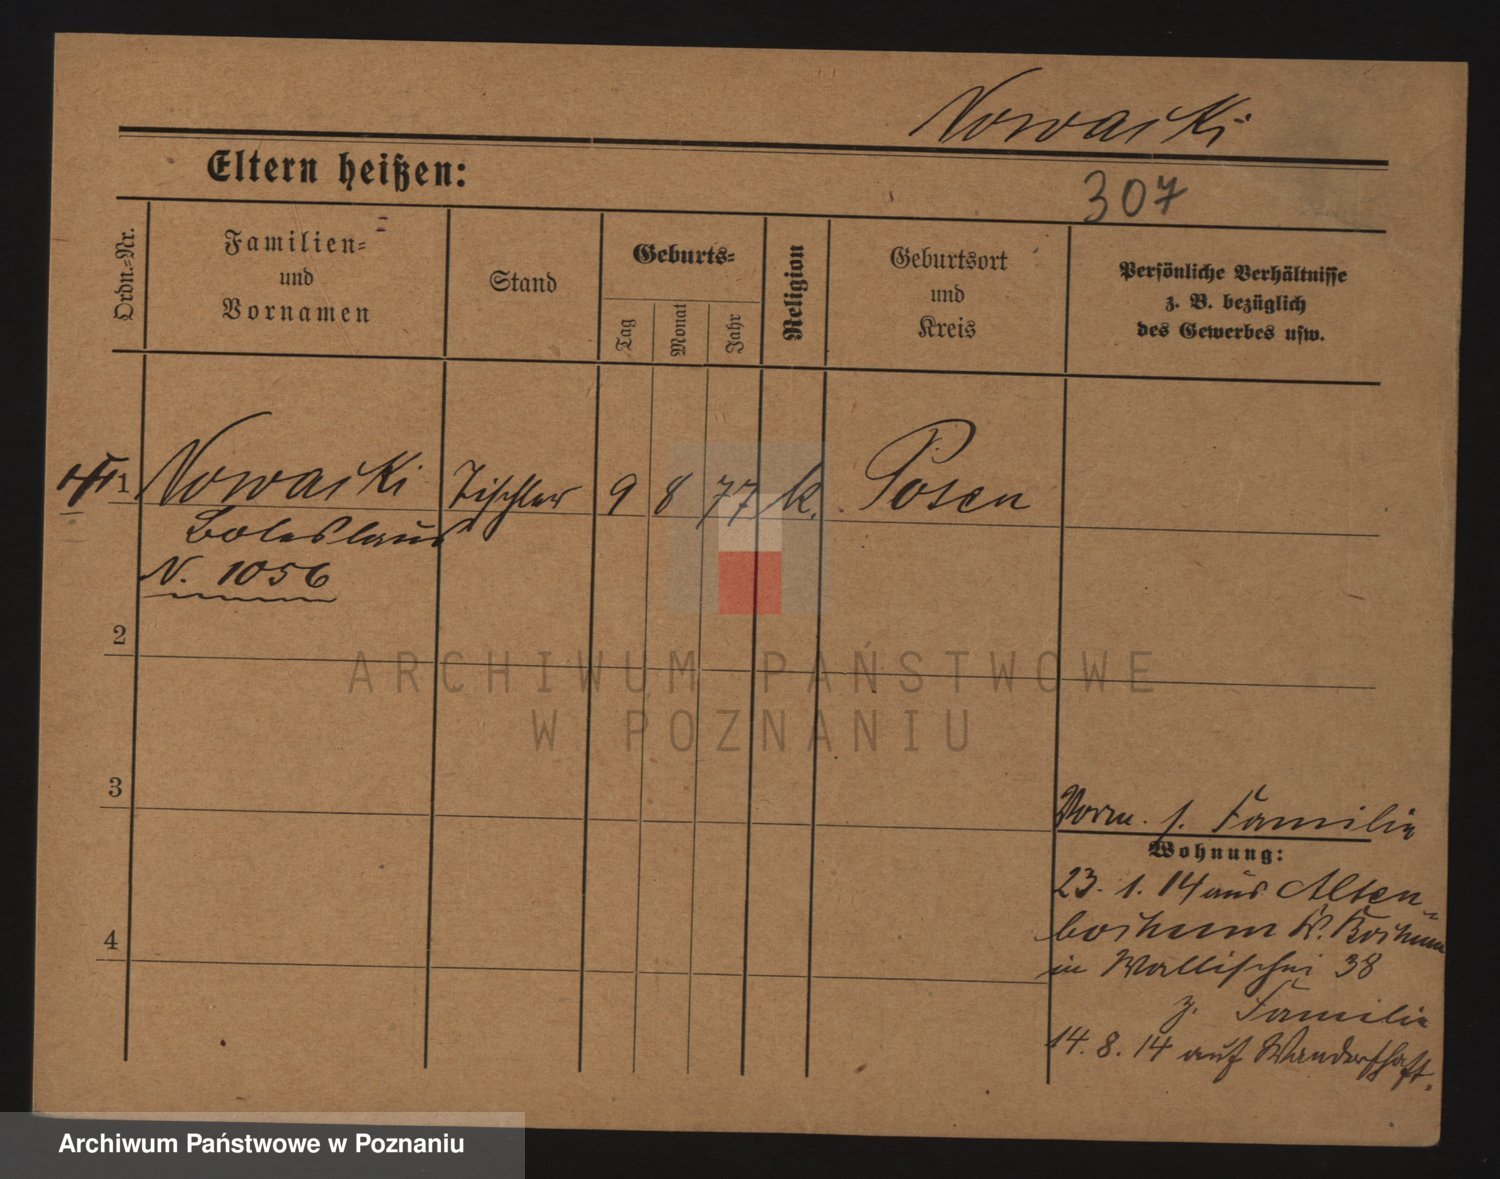 Nowacki
Eltern heißen:
307
Ordn.-Nr.
Familien-
und
Vornamen
Stand
Geburts-
Tag
Monat
Jahr
Religion
Geburtsort
und
Kreis
Persönliche Verhältnisse
z. B. bezüglich
des Gewerbes usw.
1 Nowacki Tischler 9 8 77 k. Posen
Boleslaus
N. 1056
2
ARCHIWUM PAŃSTWOWE
W POZNANIU
3
Vorm. s. Familie
Wohnung:
23. 1. 14 aus Alten-
bochum K. Bochum
4
in Wallischei 38
z. Familie
14. 8. 14 auf Wanderschaft.
Archiwum Państwowe w Poznaniu